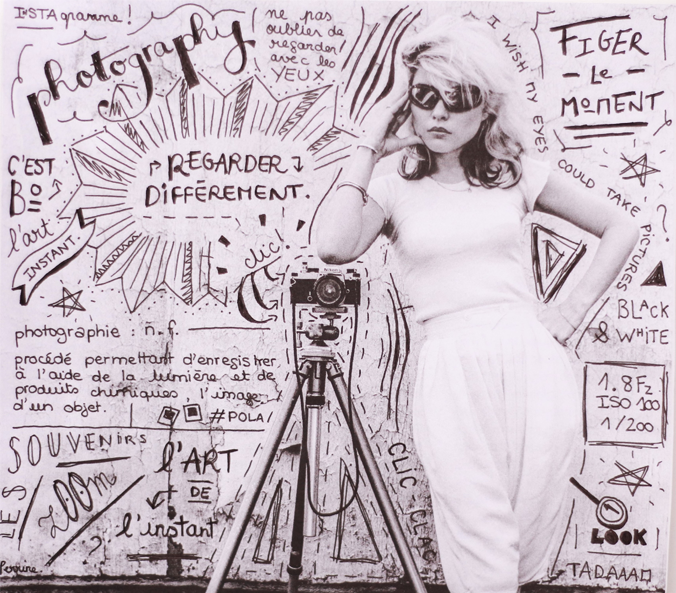 INSTAgramme!
photography
ne pas
oublier de
regarder
avec les
YEUX
I WISH MY EYES
COULD TAKE PICTURES
FIGER
- Le -
MOMENT
C'EST
Bo
l'art
INSTANT.
REGARDER
DIFFÉREMENT.
clic!
BLACK
& WHITE
photographie : n.f.
procédé permettant d'enregistrer,
à l'aide de la lumière et de
produits chimiques, l'image
d'un objet.
#POLA
1.8 Fz
ISO 100
1/200
LES SOUVENIRS
ZOOM
l'ART
DE
l'instant
CLIC-CLAC
LOOK
TADAAAM
Perrine.